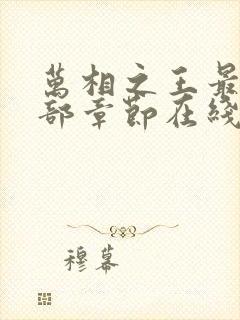 萬相之王最
部章節在綫
穆幕